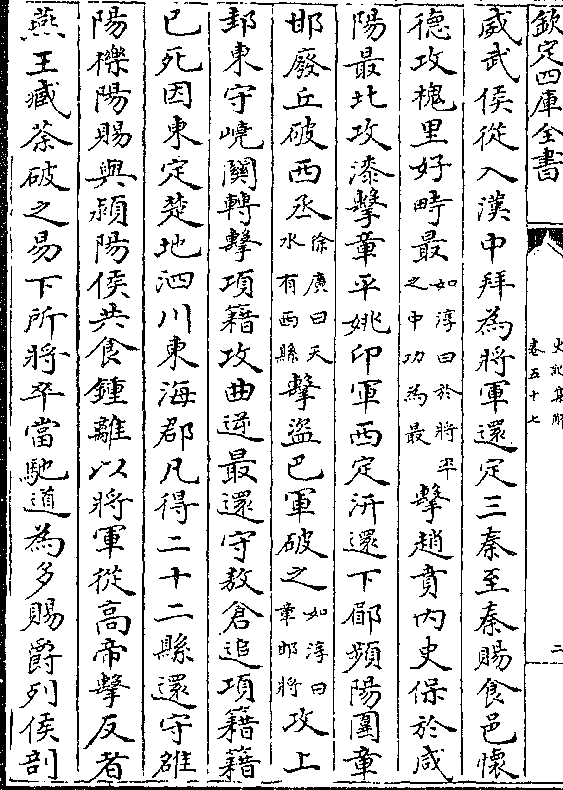 欽定四庫全書
史記集解
卷五十七
二
威武侯從入漢中拜為將軍還定三秦至秦賜食邑懷
德攻槐里好畤最如淳曰於將率之中功為最擊趙賁內史保於咸
陽最北攻漆擊章平姚卬軍西定汧還下郿頻陽圍章
邯廢丘破西丞徐廣曰天水有西縣擊盜巴軍破之如淳曰章邯將攻上
邽東守嶢關轉擊項籍攻曲逆最還守敖倉追項籍籍
已死因東定楚地泗川東海郡凡得二十二縣還守雒
陽櫟陽賜與潁陽侯共食鍾離以將軍從高帝擊反者
燕王臧荼破之易下所將卒當馳道為多賜爵列侯剖